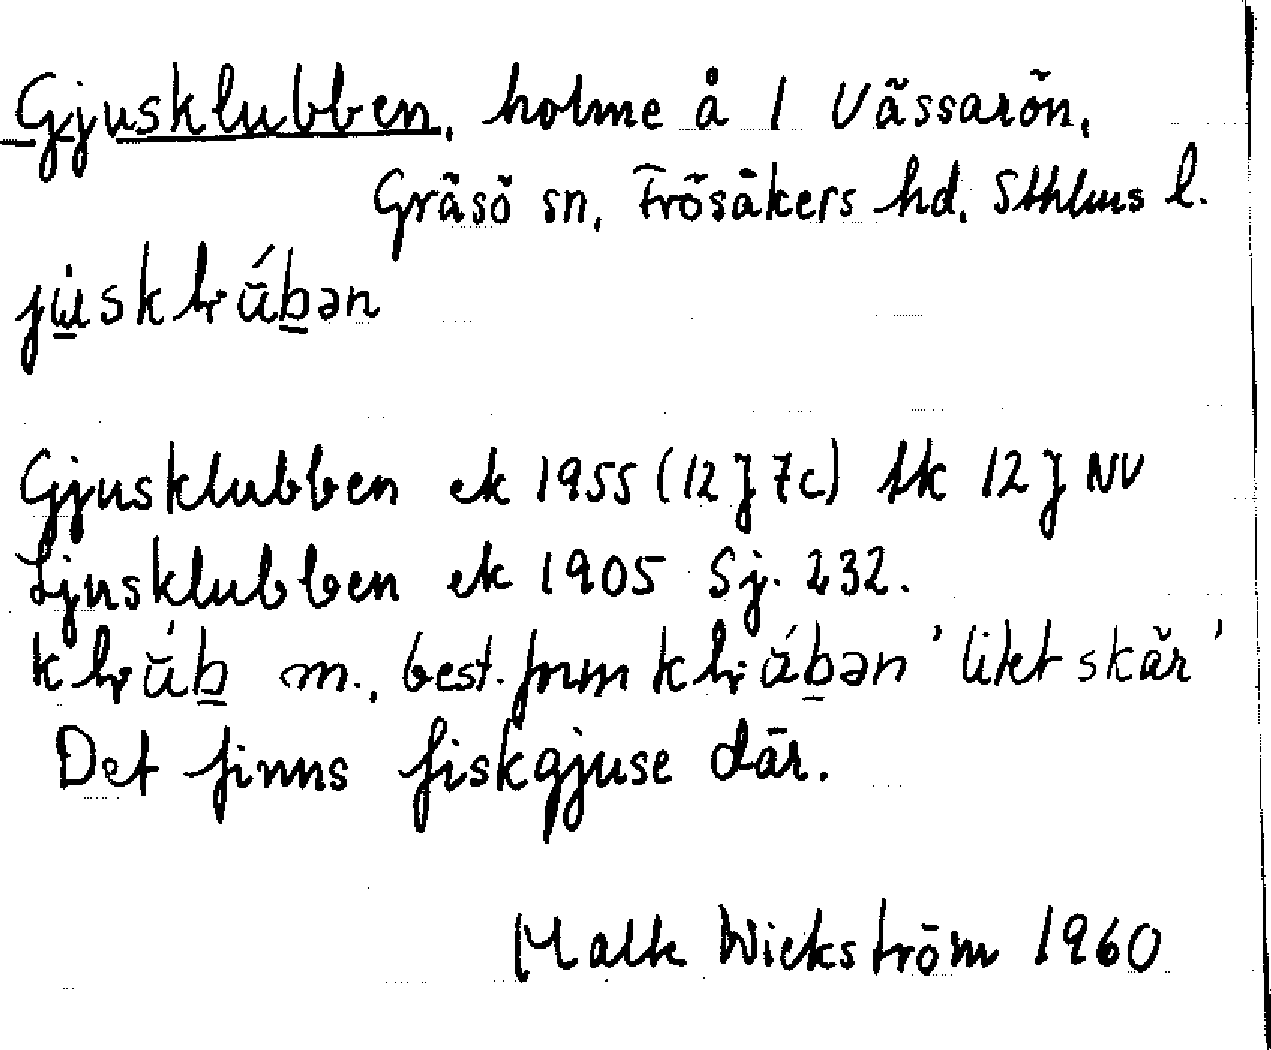 Gjusklubben, holme å 1 Vässarön,
Gräsö sn, Frösåkers hd, Sthlms l.
Gjusklubben ek 1955 (12 J 7c) tk 12 J NV
Ljusklubben ek 1905 Sj. 232.
m., best. form 'litet skär'
Det finns fiskgjuse där.
Wickström 1960